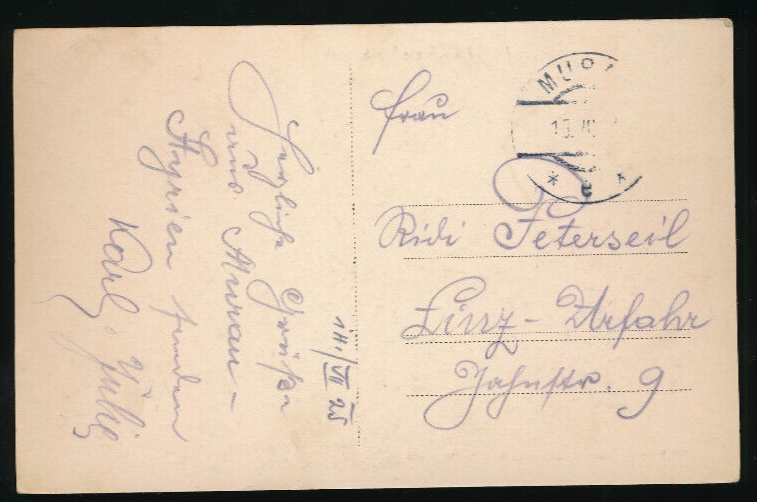 Herzliche Grüße
aus Murau -
Styrien senden
Karl, Julie
14./VII 25
Frau
Ridi Peterseil
Linz - Urfahr
Jahnstr. 9
MURA
* c *